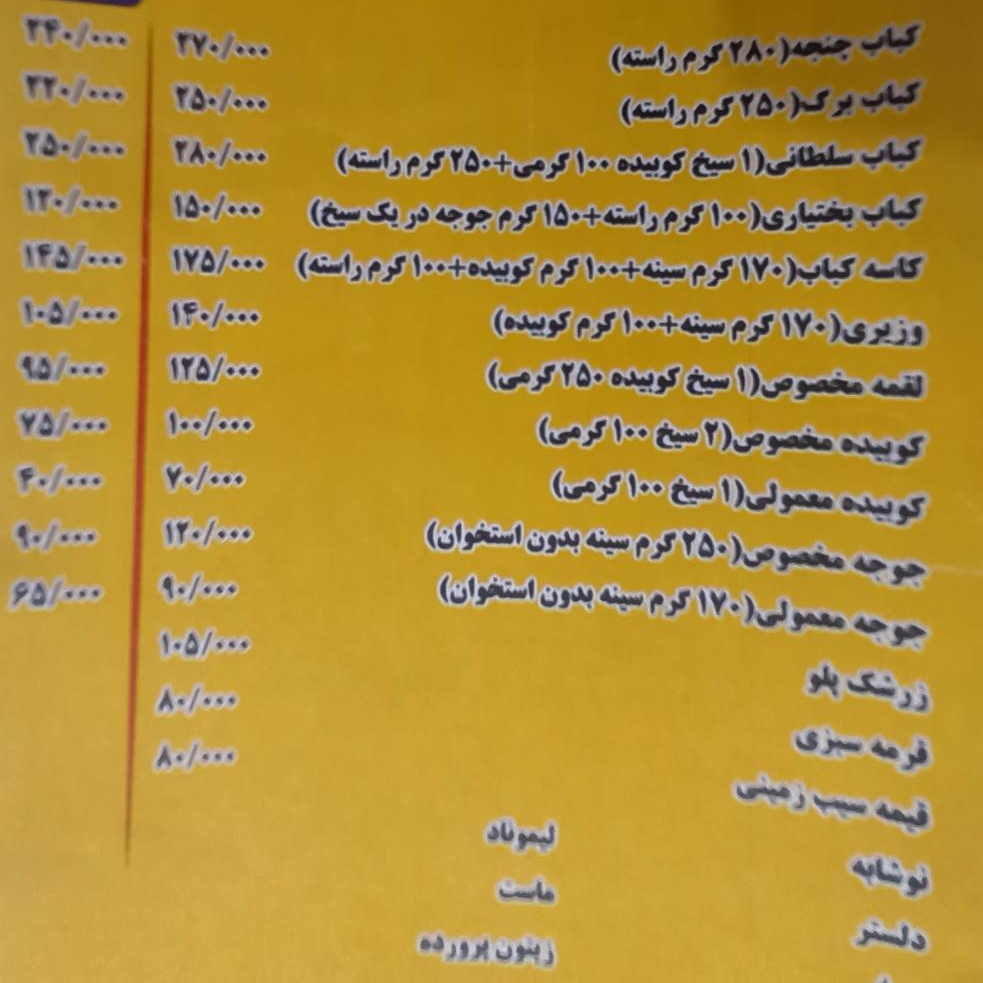 کباب چنجه(۲۸۰ گرم راسته) ۲۷۰/۰۰۰ ۲۴۰/۰۰۰
کباب برگ(۲۵۰ گرم راسته) ۲۵۰/۰۰۰ ۲۲۰/۰۰۰
کباب سلطانی(۱ سیخ کوبیده ۱۰۰ گرمی+۲۵۰ گرم راسته) ۲۸۰/۰۰۰ ۲۵۰/۰۰۰
کباب بختیاری(۱۰۰ گرم راسته+۱۵۰ گرم جوجه در یک سیخ) ۱۵۰/۰۰۰ ۱۲۰/۰۰۰
کاسه کباب(۱۷۰ گرم سینه+۱۰۰ گرم کوبیده+۱۰۰ گرم راسته) ۱۷۵/۰۰۰ ۱۴۵/۰۰۰
وزیری(۱۷۰ گرم سینه+۱۰۰ گرم کوبیده) ۱۴۰/۰۰۰ ۱۰۵/۰۰۰
لقمه مخصوص(۱ سیخ کوبیده ۲۵۰ گرمی) ۱۲۵/۰۰۰ ۹۵/۰۰۰
کوبیده مخصوص(۲ سیخ ۱۰۰ گرمی) ۱۰۰/۰۰۰ ۷۵/۰۰۰
کوبیده معمولی(۱ سیخ ۱۰۰ گرمی) ۷۰/۰۰۰ ۴۰/۰۰۰
جوجه مخصوص(۲۵۰ گرم سینه بدون استخوان) ۱۲۰/۰۰۰ ۹۰/۰۰۰
جوجه معمولی(۱۷۰ گرم سینه بدون استخوان) ۹۰/۰۰۰ ۶۵/۰۰۰
زرشک پلو ۱۰۵/۰۰۰
قرمه سبزی ۸۰/۰۰۰
قیمه سیب زمینی ۸۰/۰۰۰
نوشابه لیموناد
دلستر ماست
زیتون پرورده